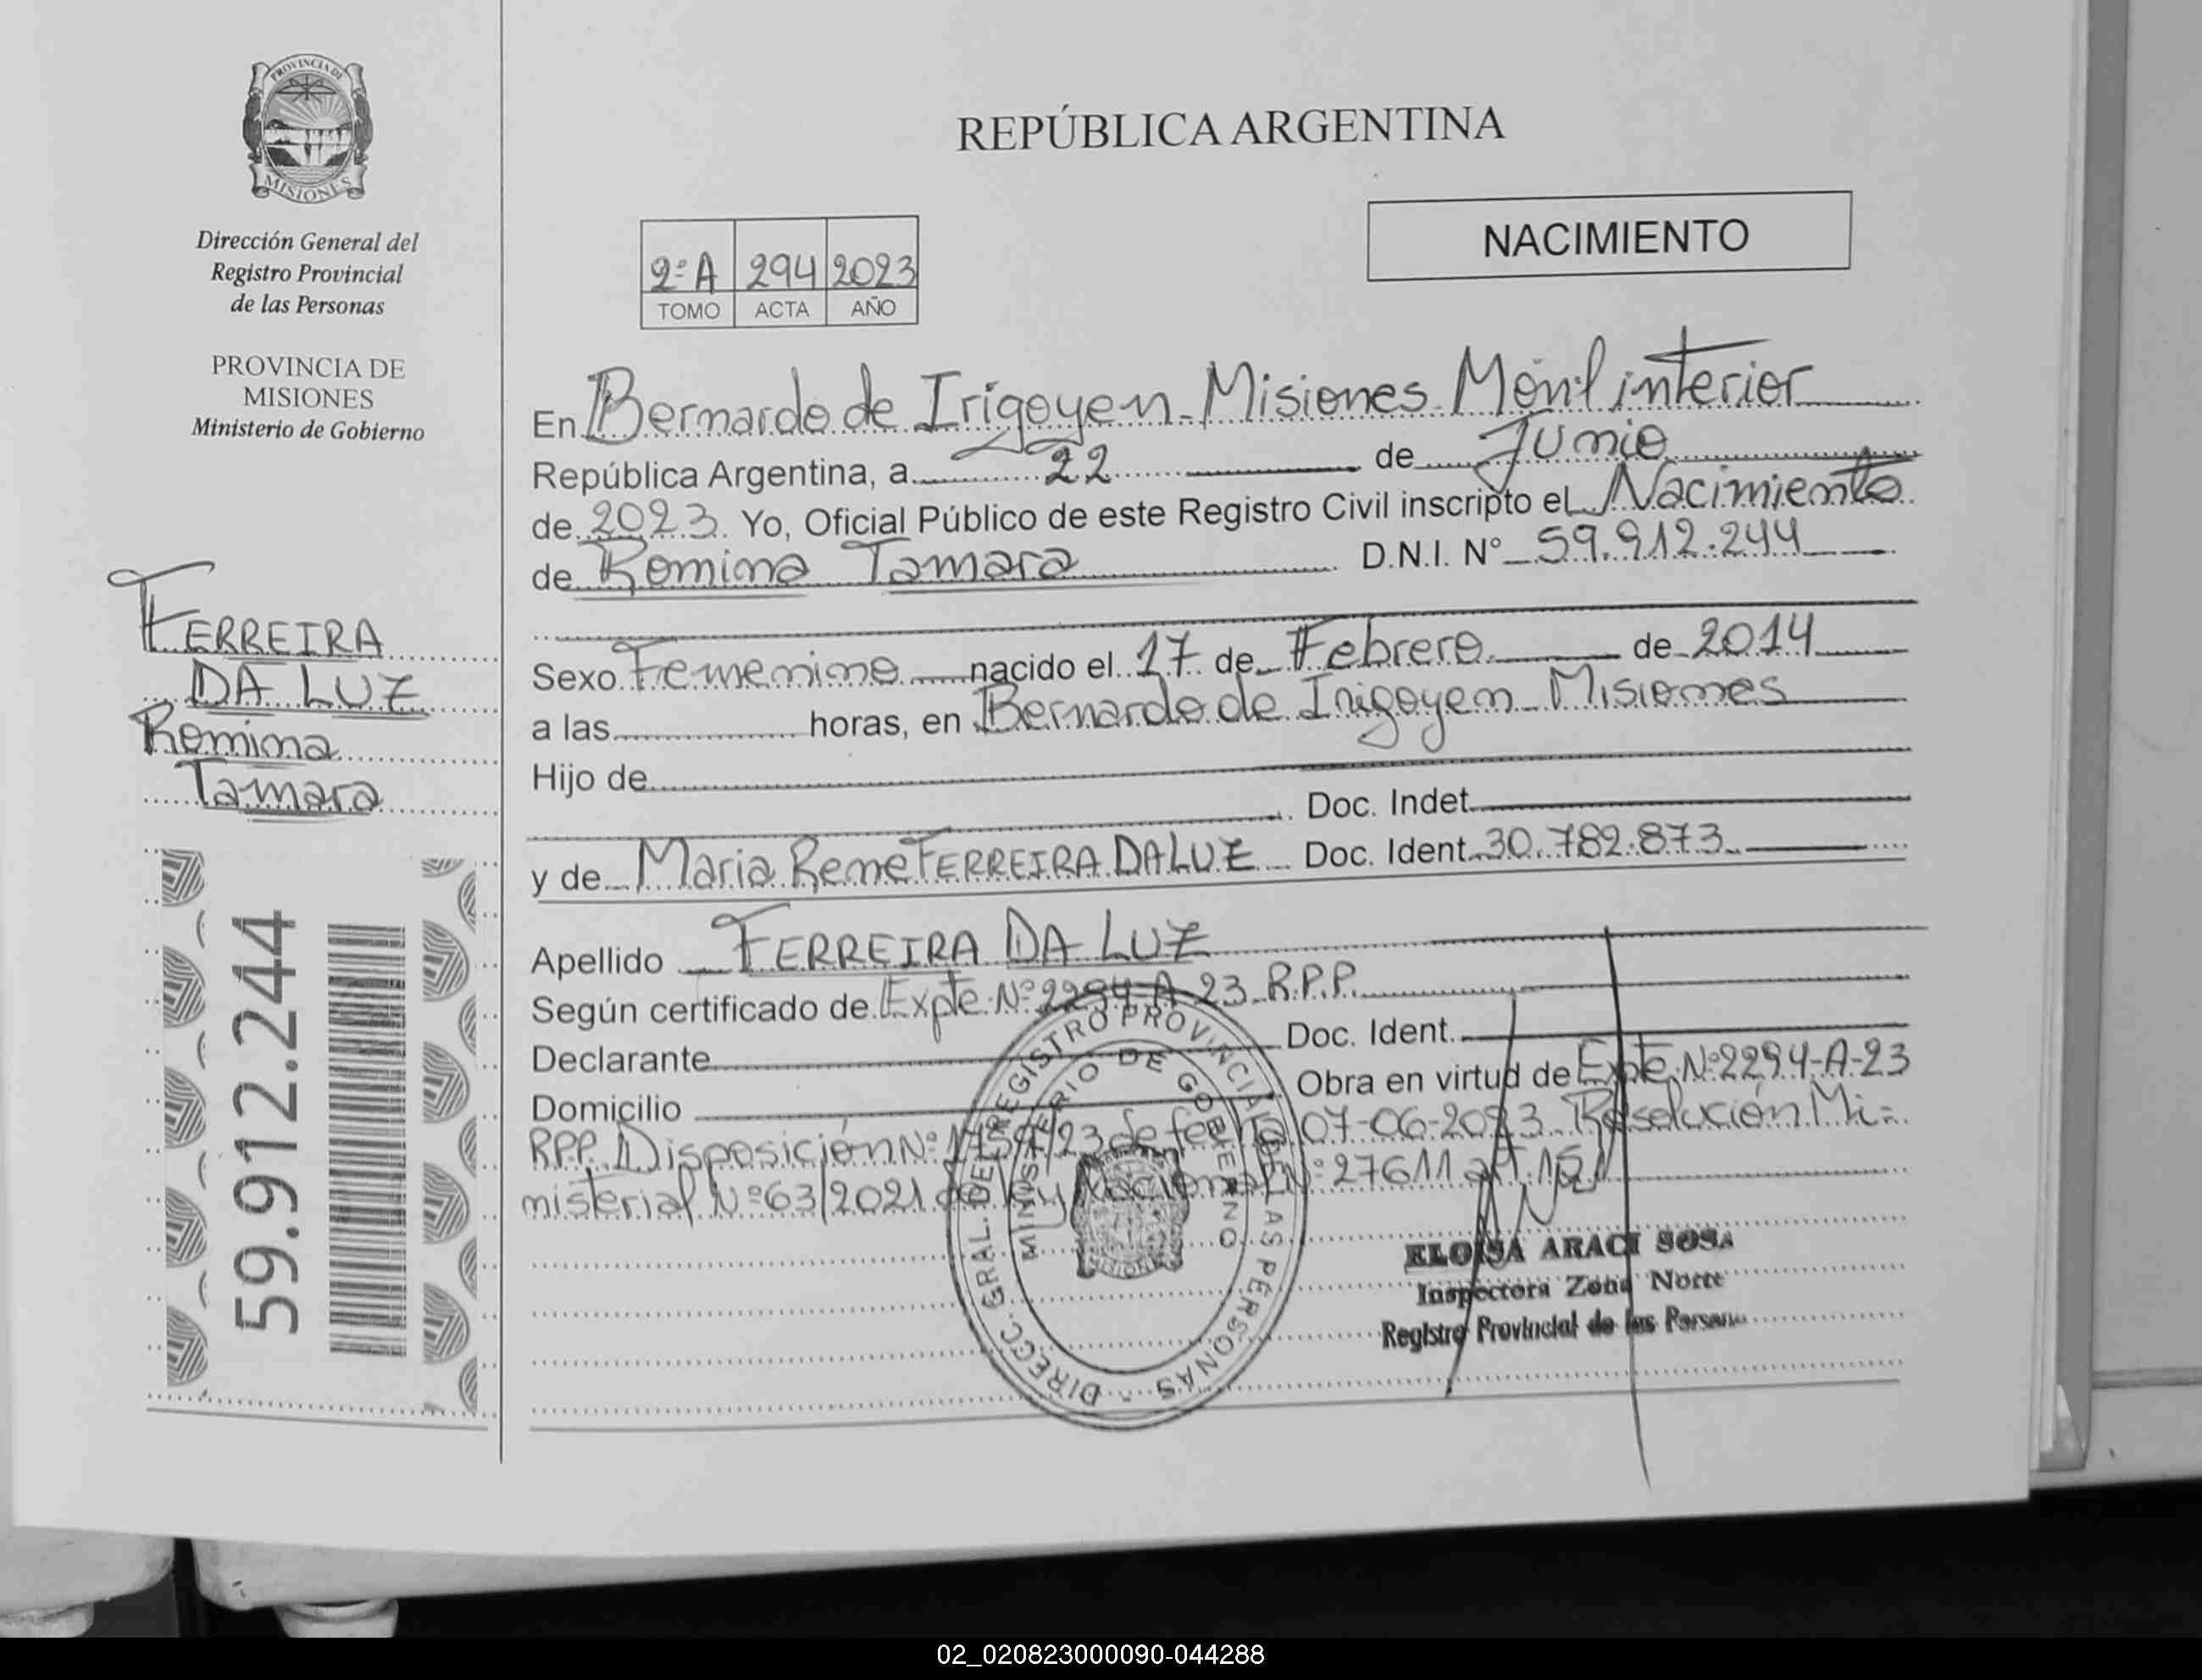 PROVINCIA DE
MISIONES
Dirección General del
Registro Provincial
de las Personas
PROVINCIA DE
MISIONES
Ministerio de Gobierno
FERREIRA
DA LUZ
Romina
Tamara
59.912.244
REPÚBLICA ARGENTINA
NACIMIENTO
2º A 294 2023
TOMO ACTA AÑO
En Bernardo de Irigoyen - Misiones - Móvil interior
República Argentina, a 22 de Junio
de 2023 Yo, Oficial Público de este Registro Civil inscripto el Nacimiento
de Romina Tamara D.N.I. N° 59.912.244
Sexo Femenino nacido el 17 de Febrero de 2014
a las horas, en Bernardo de Irigoyen - Misiones
Hijo de
Doc. Indet.
y de Maria Rene FERREIRA DA LUZ Doc. Ident. 30.782.873
Apellido FERREIRA DA LUZ
Según certificado de Expte. Nº 2294-A-23 R.P.P.
Declarante Doc. Ident.
Domicilio Obra en virtud de Expte. Nº 2294-A-23
RPP. Disposición Nº 23 de fecha 07-06-2023. Resolución Mi=
nisterial Nº 63/2021 de Ley Nacional Nº 27611 art. 12
DIRECC. GRAL. DEL REGISTRO PROVINCIAL DE LAS PERSONAS -
MINISTERIO DE GOBIERNO
MISIONES
ELOISA ARACI SOSA
Inspectora Zona Norte
Registro Provincial de las Personas
02_020823000090-044288